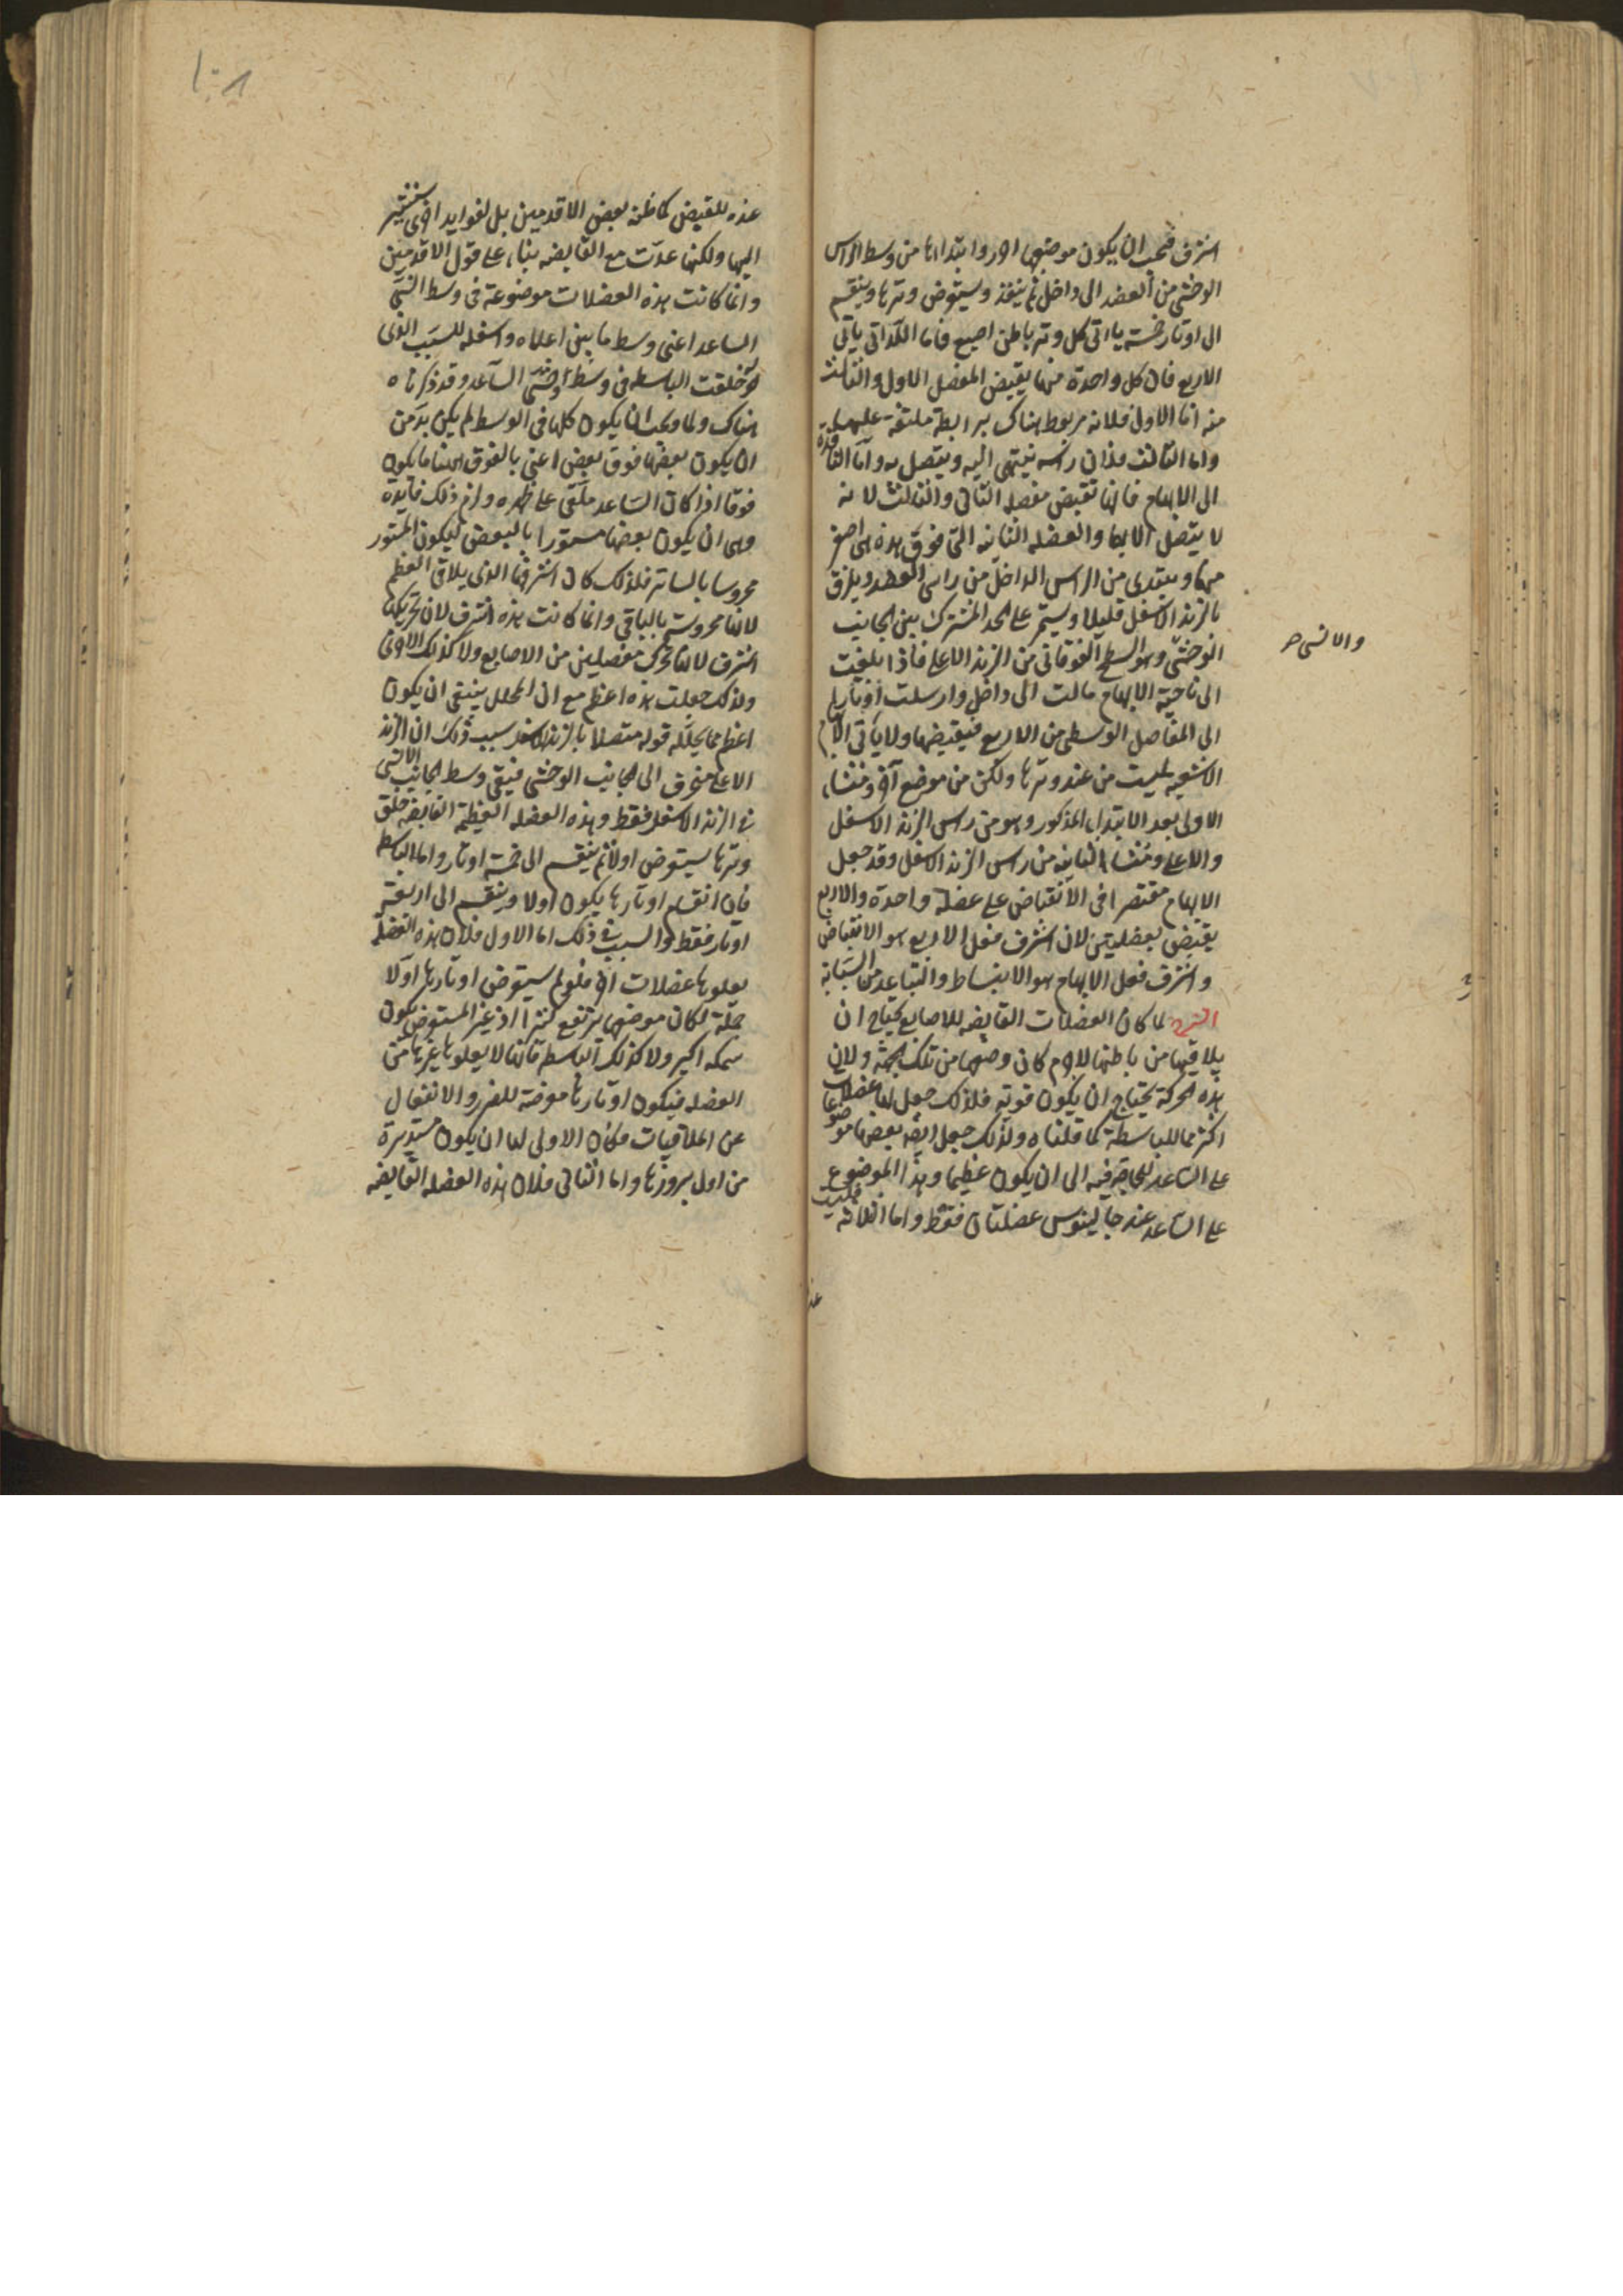 اشرف فيجب ان يكون موضعها احرز وابتداءها من وسط الراس
الوحشى من العضد الى داخل ثم ينفذ ويستعرض وترها وينقسم
الى اوتار خمسة ياتى كل وتر باطن اصبع فاما اللواتى ياتى
الاربع فان كل واحدة منها يقبض المفصل الاول والثالث
منه اما الاول فلانه مربوط هناك برابطة ملتفة عليها
واما الثالث فلان راسه ينتهى اليه ويتصل به واما النافذة
الى الابهام فانها تقبض مفصله الثانى والثالث لانه
لا يتصل الا بهما والعضلة الثانية التى فوق هذه هى اصغر
منها ويبتدى من الراس الداخل من راسى العضد ويلزق
بالزند الاسفل قليلا ويستمر على الحد المشترك بين الجانب
الوحشى وهو السطح الفوقانى من الزند الاعلى فاذا بلغت
والانسى صح
الى ناحية الابهام مالت الى داخل وارسلت اوتارا
الى المفاصل الوسطى من الاربع فيقبضها ولا ياتى الابهام
الا شعبة ليست من عند وترها ولكن من موضع آخر ومنشاء
الاولى بعد الابتداء المذكور وهو من راس الزند الاسفل
والاعلى ومنشاء الثانية من راس الزند الاسفل وقد جعل
الابهام مقتصرا فى الانقباض على عضلة واحدة والاربع
يقبض بعضلتين لان اشرف فعل الاربع هو الانقباض
واشرف فعل الابهام هو الانبساط والتباعد من السبابة
الشرح لما كان العضلات القابضة للاصابع يحتاج ان
يلاقيها من باطنها لاجرم كان وضعها من تلك الجهة ولان
هذه الحركة يحتاج ان يكون قوية فلذلك جعل لها عضلات
اكثر مما للباسطة كما قلناه ولذلك جعل ايضا بعضها موضوعا
على الساعد للحاجة فيه الى ان يكون عظيما وهذا الموضوع
على الساعد عند جالينوس عضلتان فقط واما الثلاثة فليست
عنده
١٠٨
عنده للقبض كما ظنه بعض الاقدمين بل لفوايد اخرى سنشير
اليها ولكنها عدت مع القابضة بناء على قول الاقدمين
وانما كانت هذه العضلات موضوعة فى وسط انسى
الساعد اعنى وسط ما بين اعلاه واسفله للسبب الذى
له خلقت الباسطة فى وسط وحشى الساعد وقد ذكرناه
هناك ولما وجب ان يكون كلها فى الوسط لم يكن بد من
ان يكون بعضها فوق بعض اعنى بالفوق ههنا ما يكون
فوقا اذا كان الساعد ملقى على ظهره ولزم ذلك فايدة
وهى ان يكون بعضها مستورا بالبعض ليكون المستور
محروسا بالساتر فلذلك كان اشرفها الذى يلاقى العظم
لانها محروسة بالباقى وانما كانت هذه اشرف لان تحريكها
اشرف لانها تحرك مفصلين من الاصابع ولا كذلك الاخرى
ولذلك جعلت هذه اعظم مع ان المجلل ينبغى ان يكون
اعظم مما يجلله قوله متصلا بالزند الاسفل سبب ذلك ان الزند
الاعلى منحرف الى الجانب الوحشى فيبقى وسط الجانب الانسى
فى الزند الاسفل فقط وهذه العضلة العظيمة القابضة خلق
وترها يستعرض اولا ثم ينقسم الى خمسة اوتار واما الباسطة
فان انقسام اوتارها يكون اولا وينقسم الى اربعة
اوتار فقط والسبب فى ذلك اما الاول فلان هذه العضلة
يعلوها عضلات اخر فلو لم يستعرض اوتارها اولا
جملة لكان موضعها يرتفع كثيرا اذ غير المستعرض يكون
سمكه اكبر ولا كذلك الباسطة فانها لا يعلوها غيرها من
العضلة فيكون اوتارها معرضة للضرر والانفعال
عن الملاقيات فكان الاولى لها ان يكون مستديرة
من اول بروزها واما الثانى فلان هذه العضلة القابضة